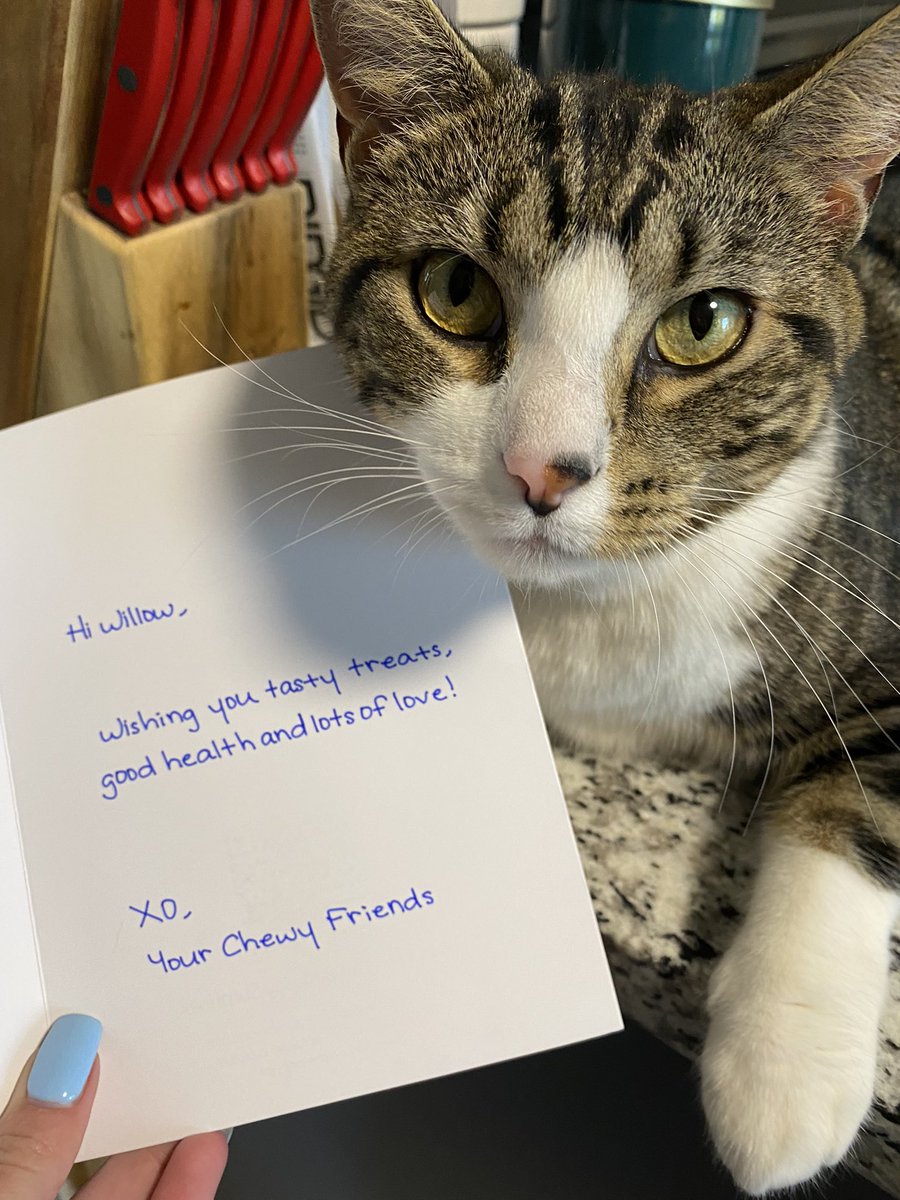 Hi Willow,
Wishing you tasty treats,
good health and lots of love!
XO,
Your Chewy Friends